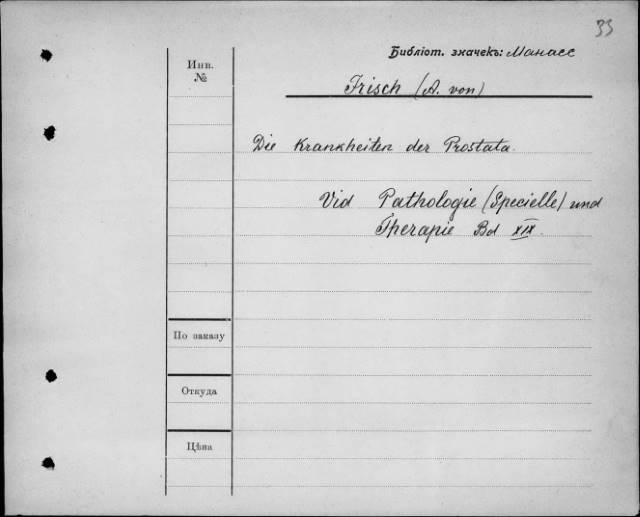 33
Библіот. значекъ: Манасс
Инв.
№
Frisch (A. von)
Die Krankheiten der Prostata.
Vid Pathologie (Specielle) und
Therapie Bd XIX.
По заказу
Откуда
Цѣна